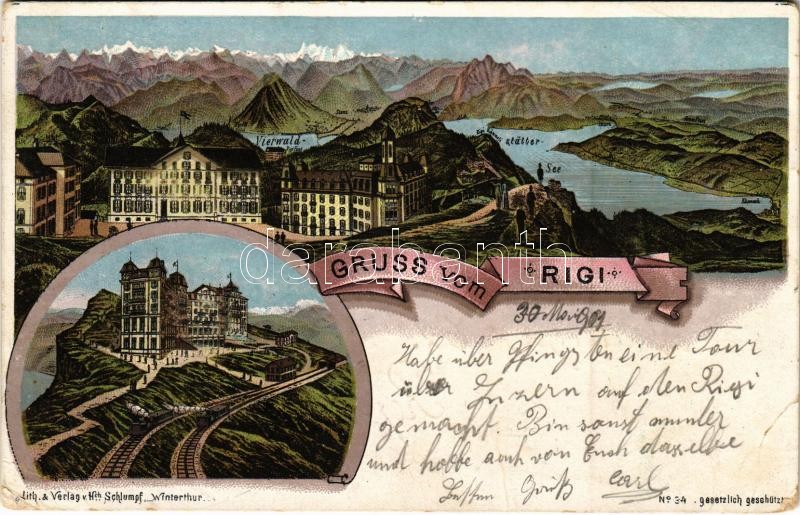 Vierwald-
stätter-
See
GRUSS vom RIGI
30 Mai 901
Habe über Pfingsten eine Tour
über Luzern auf den Rigi
gemacht. Bin sonst munter
und hoffe auch von Euch dasselbe
Besten Gruß Carl
Lith. & Verlag v. Hch. Schlumpf, Winterthur.
No 34. gesetzlich geschützt
darabanth.com